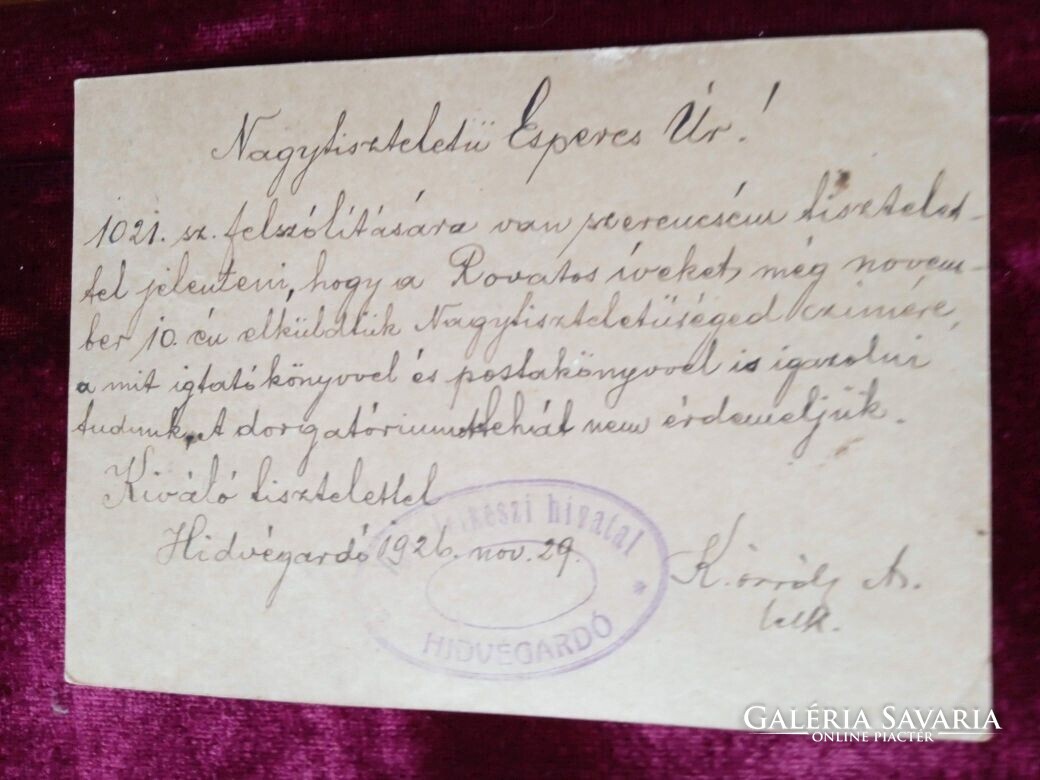 Nagytiszteletü Esperes Úr!
1021. sz. felszólítására van szerencsém tisztelet-
tel jelenteni, hogy a Rovatos íveket, még novem-
ber 10.-én elküldtük Nagytiszteletüséged czimére,
a mit igtatókönyvvel és postakönyvvel is igazolni
tudunk. A dorgatóriumot tehát nem érdemeljük.
Kiváló tisztelettel
Hidvégardó 1926. nov. 29.
lelkészi hivatal
HIDVÉGARDÓ
lelk.
GALÉRIA SAVARIA
ONLINE PIACTÉR